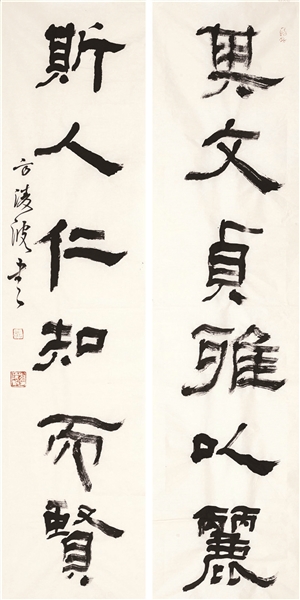 其文貞雅以麗
斯人仁知而賢
方凌波書